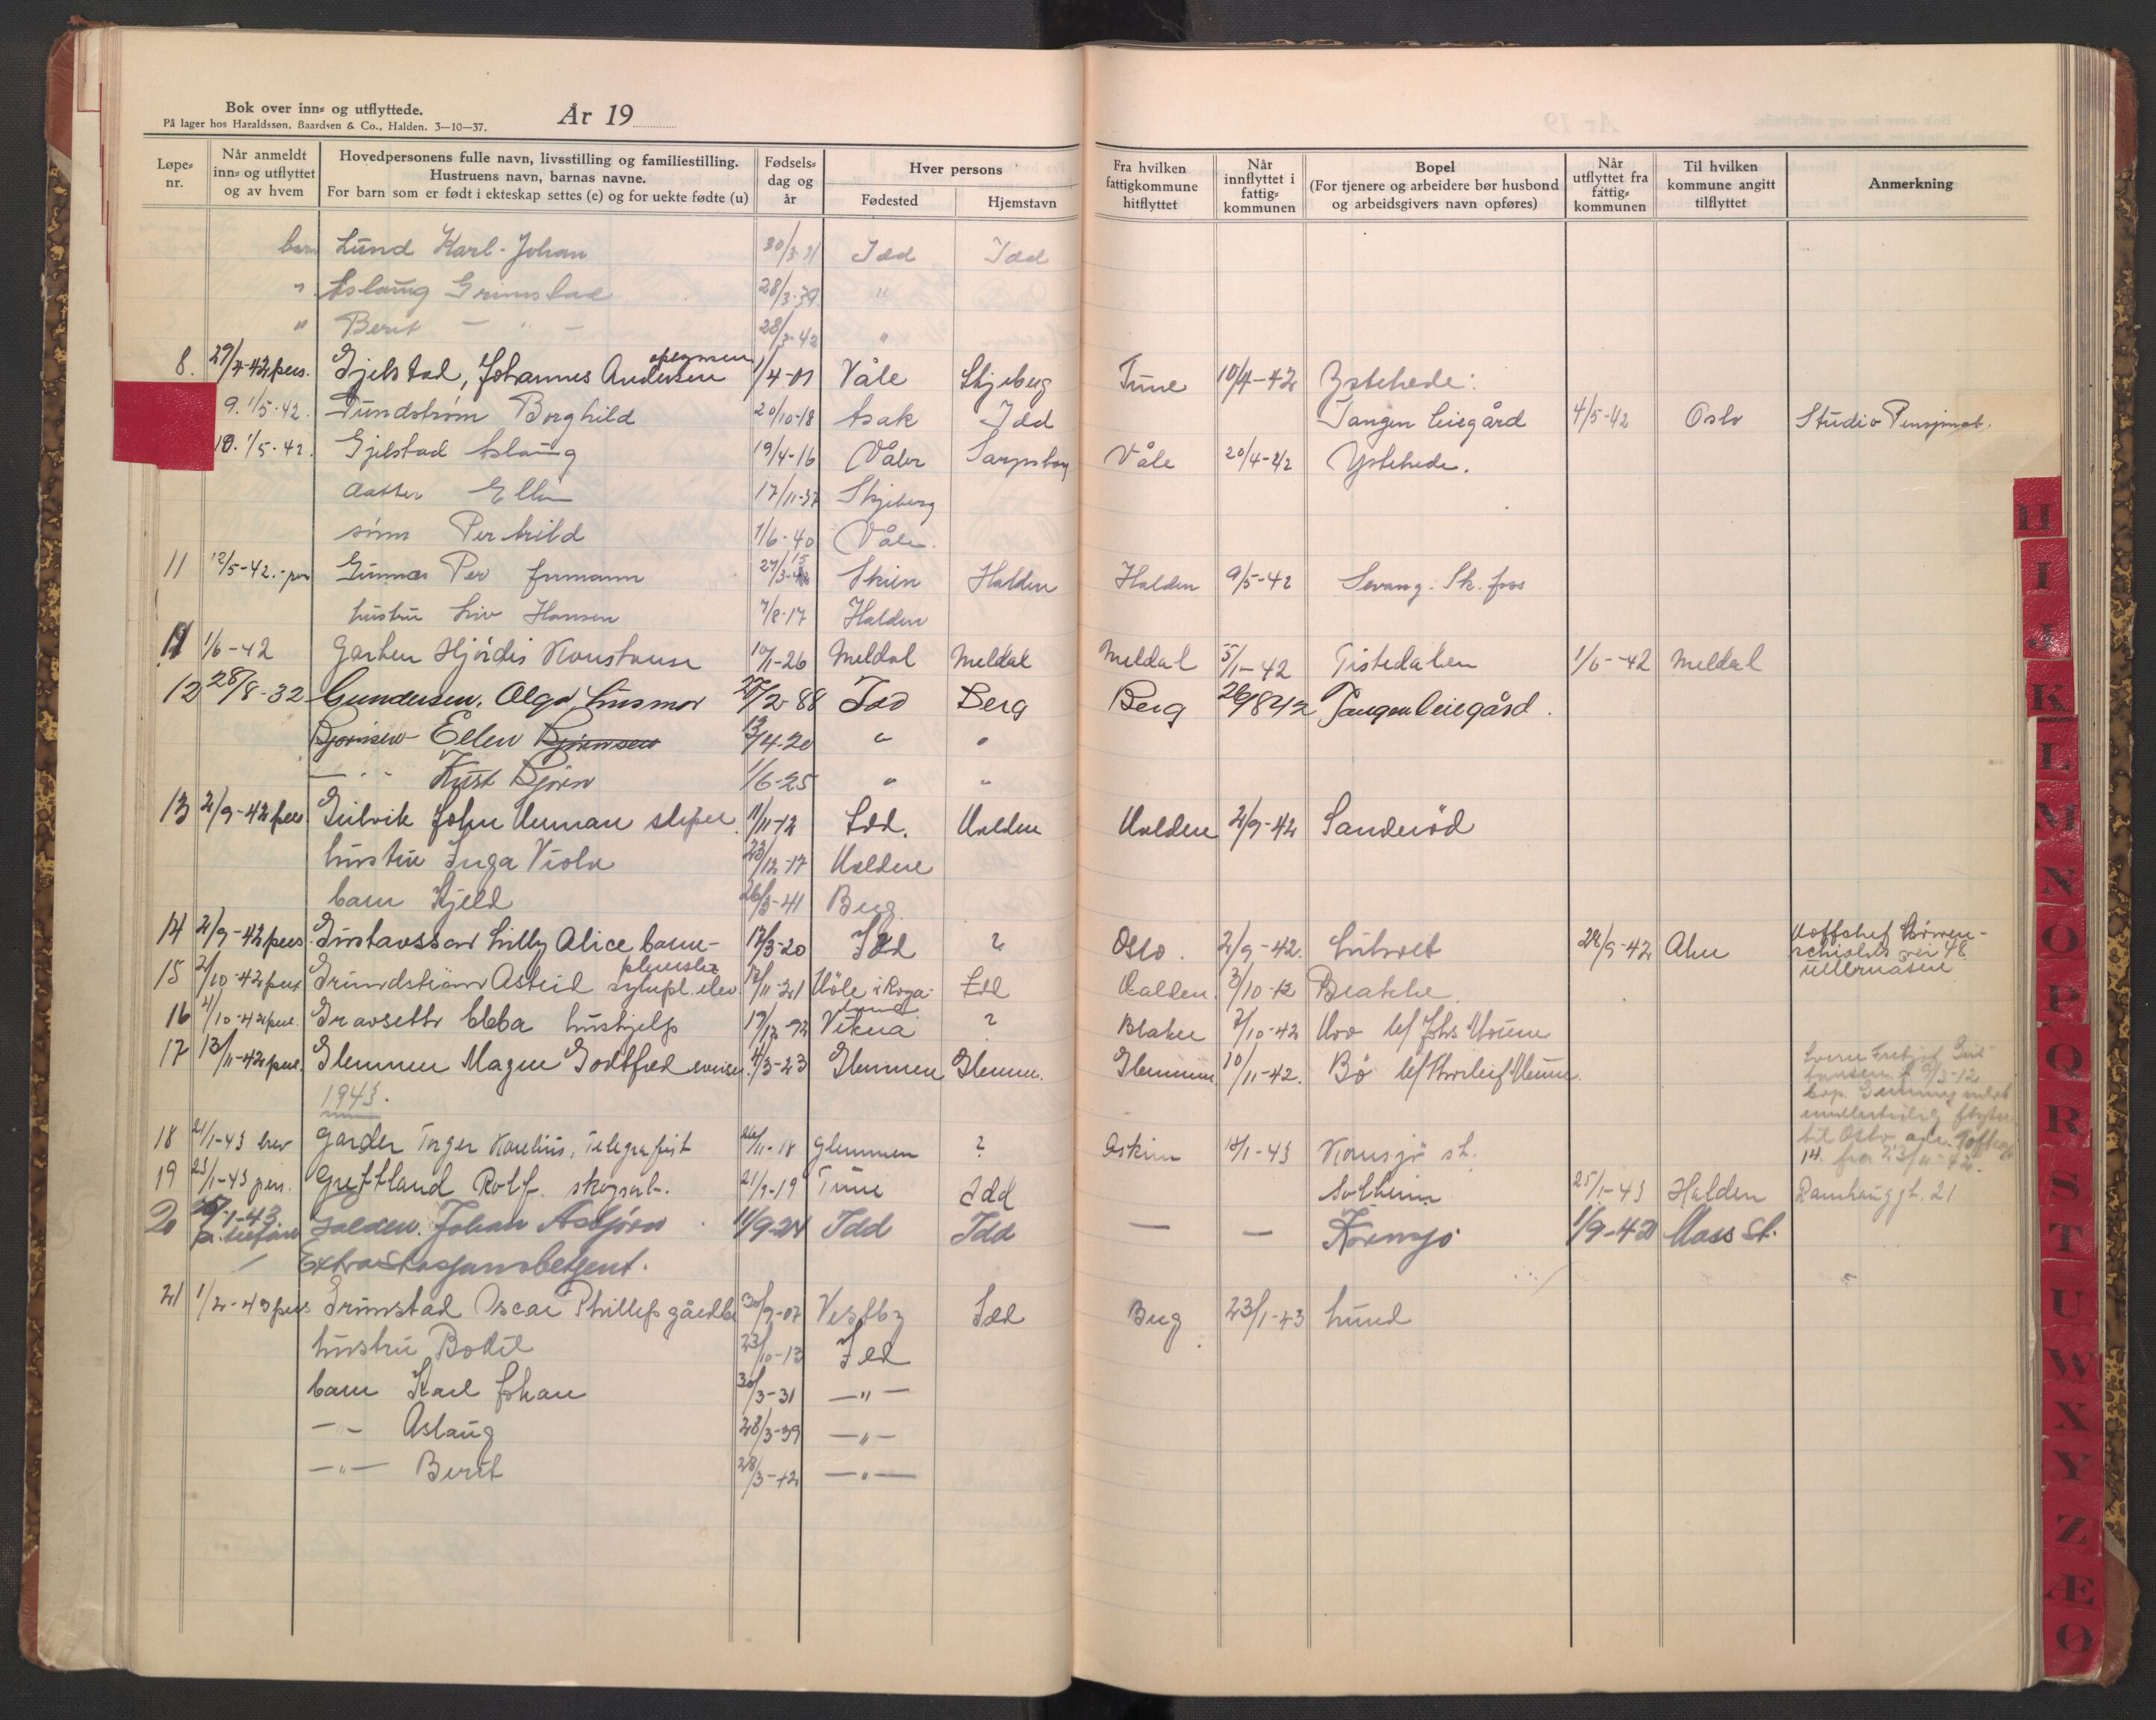 Bok over inn- og utflyttede.
På lager hos Haraldssøn, Baardsen & Co., Halden. 3—10—37.
År 19
Løpe-nr. Når anmeldt inn- og utflyttet og av hvem Hovedpersonens fulle navn, livsstilling og familiestilling. Hustruens navn, barnas navne. For barn som er født i ekteskap settes (e) og for uekte fødte (u) Fødsels-dag og år Hver persons Fødested Hjemstavn Fra hvilken fattigkommune hitflyttet Når innflyttet i fattig-kommunen Bopel (For tjenere og arbeidere bør husbond og arbeidsgivers navn opføres) Når utflyttet fra fattig-kommunen Til hvilken kommune angitt tilflyttet Anmerkning
barn Lund Karl-Johan 30/3-31 Idd Idd
" Aslaug Grimstad 28/3-39 "
" Berit — " — 28/3-42 "
8. 29/4-42 pers. Gjelstad, Johannes Andersen 1/4-01 Våle Skjeberg Tune 10/4-42 Ystehede.
9. 1/5-42. Borghild 20/10-18 Asak Idd Tangen leiegård 4/5-42 Oslo Studio Pensjonat.
10. 1/5-42. Gjelstad Aslaug 19/4-16 Våler Sarpsborg Våle 20/4-42 Ystehede.
datter Ellen 17/11-37 Skjeberg
sønn Per 1/6-40 Våle
11 12/5-42.-pers Gunnæs Per formann 27/3-15 Skien Halden Halden 9/5-42 Sk. foss
hustru Liv Hansen 7/8-17 Halden
11 1/6-42 Garten Hjørdis Konstanse 10/1-26 Meldal Meldal Meldal 5/1-42 Tistedalen 1/6-42 Meldal
12 28/8-32 Gundersen, Olga, husmor 27/2-88 Idd Berg Berg 26/8 42 Tangen leiegård.
Bjørnsen Ellen Bjørnsen 13/4-20 " "
— " - Knut Bjørn 1/6-25 " "
13 2/9-42 pers Gulvik John Herman sliper 11/11-12 Idd. Halden Halden 2/9-42 Sanderød
hustru Inga Viola 23/12-17 Halden
barn Kjeld 26/3-41 Berg
14 2/9-42 pers Gustavsson Lilly Alice barne- 17/3-20 Idd ? Oslo. 2/9-42. 28/9-42 Aker
pleierske
15 2/10-42 pers Grundstrøm Astrid sykepl. elev 12/11-21 Høle i Roga- Idd Halden 3/10-42 Brække
land
16 2/10-42 pers. Gravseth Ebba hushjelp Vikna ? Blaker 2/10-42 Hov b/ Johs
17 13/11-42 pers. Glemmen Magne Godtfred 4/3-23 Glemmen Glemm. Glemmen 10/11-42. Bø b/
1943.
18 21/1-43 brev Garder Torger Kornelius, Telegrafist 26/11-18 Glemmen ? Askim 18/1-43 Kornsjø st.
19 23/1-43 pers. Greftland Rolf. skogsarb. 21/9-19 Tune Idd Solheim 25/1-43 Halden Damhauggt. 21
20 26/1-43 p. telefon Johan Asbjørn 11/9-24 Idd Idd — — Kornsjø 1/9-42 Moss St.
Extra Stasjonsbetjent.
21 1/2-43 pers Grimstad Oscar Phillip gårdbr 30/9-07 Vestby Idd Berg 23/1-43 Lund
hustru Bodil 23/10-13 Idd
barn Karl Johan 30/3-31 —"—
—"— Aslaug 28/3-39 —"—
—"— Berit 28/3-42 —"—
H
I
J
K
L
M
N
O
P
Q
R
S
T
U
W
X
Y
Z
Æ
Ø